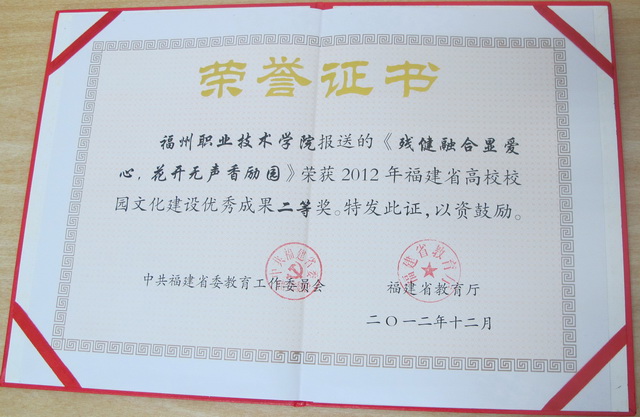 荣誉证书
福州职业技术学院报送的《残健融合显爱
心，花开无声香励园》荣获2012年福建省高校校
园文化建设优秀成果二等奖。特发此证，以资鼓励。
中共福建省委教育工作委员会
福建省教育厅
二〇一二年十二月
福建省教育厅